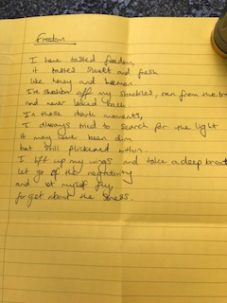 Freedom
I have tasted freedom
it tastes sweet and fresh
like honey and lemon
I've shaken off my shackles, ran from the
and never looked back
In those dark moments,
I always tried to search for the light
it may have been dim
but still flickered within.
I lift up my wings and take a deep breat
let go of the negativity
and let myself fly,
forget about the stress.